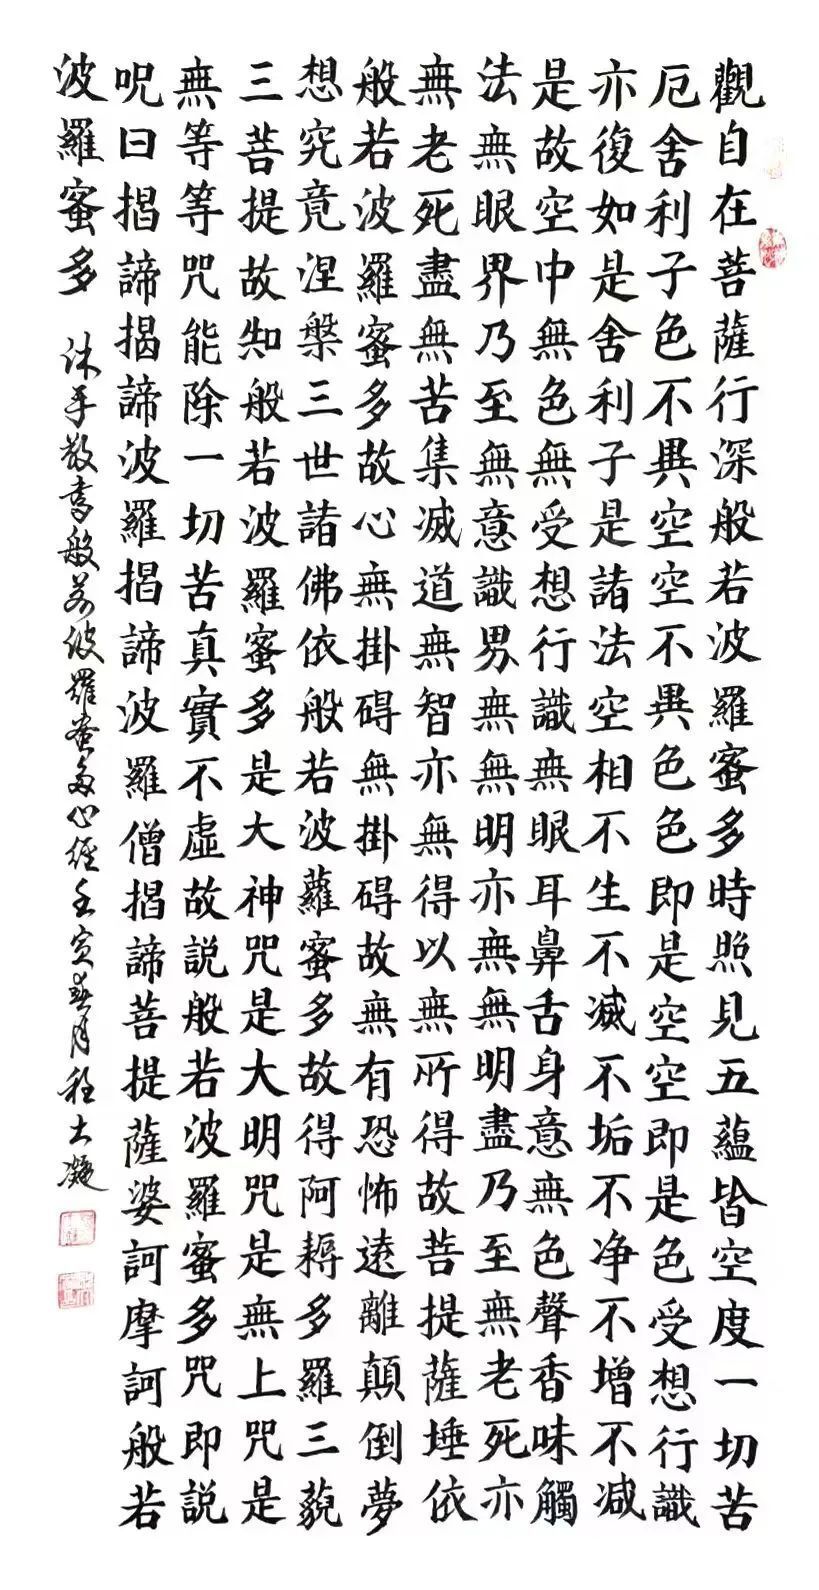 觀自在菩薩行深般若波羅蜜多時照見五蘊皆空度一切苦
厄舍利子色不異空空不異色色即是空空即是色受想行識
亦復如是舍利子是諸法空相不生不滅不垢不净不增不减
是故空中無色無受想行識無眼耳鼻舌身意無色聲香味觸
法無眼界乃至無意識男無無明亦無無明盡乃至無老死亦
無老死盡無苦集滅道無智亦無得以無所得故菩提薩埵依
般若波羅蜜多故心無掛碍無掛碍故無有恐怖遠離顛倒夢
想究竟涅槃三世諸佛依般若波蘿蜜多故得阿耨多羅三藐
三菩提故知般若波羅蜜多是大神咒是大明咒是無上咒是
無等等咒能除一切苦真實不虛故説般若波羅蜜多咒即説
呪曰揭諦揭諦波羅揭諦波羅僧揭諦菩提薩婆訶摩訶般若
波羅蜜多 沐手敬書般若波羅蜜多心經壬寅春月程